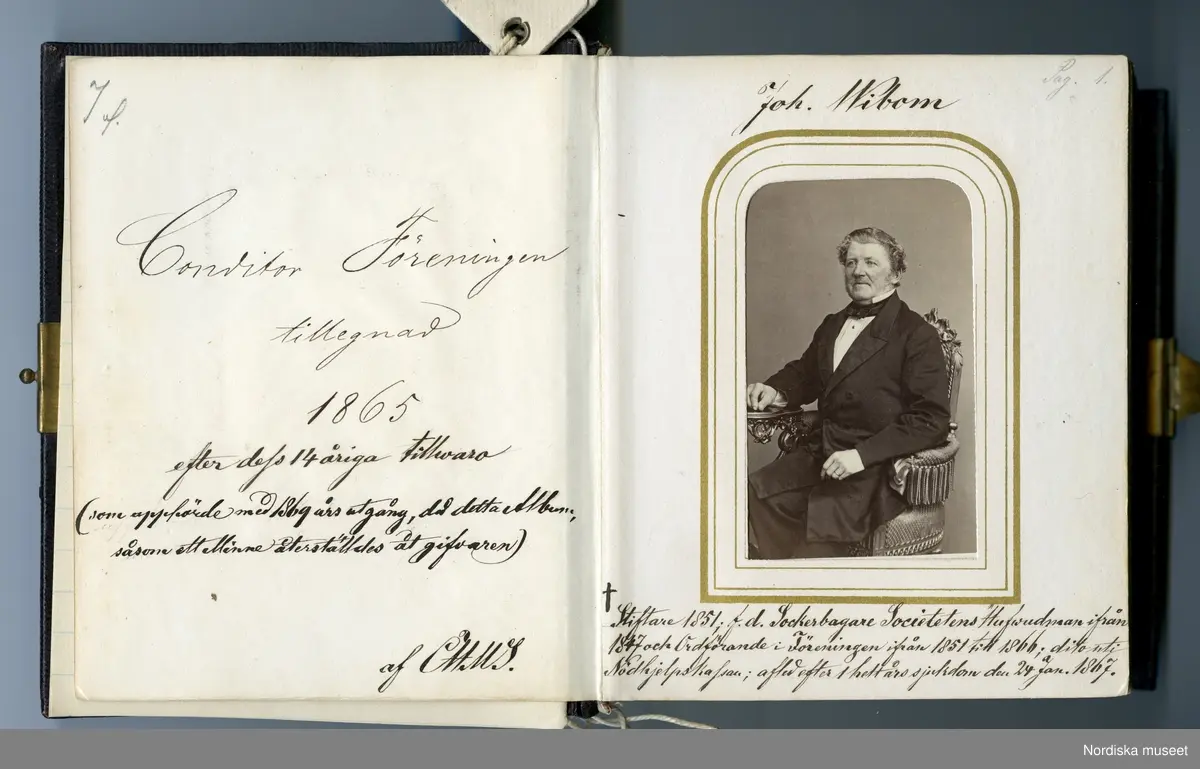 7
Conditor Föreningen
tillegnad
1865
efter dess 14 åriga tillwaro
(som upphörde med 1869 års utgång, då detta Album,
såsom ett Minne återställdes åt gifvaren)
af
Pag. 1.
Joh. Wibom
† Stiftare 1851; f. d. Sockerbagare Societetens Hufwudman ifrån
1847 och Ordförande i Föreningen ifrån 1851 till 1866; dito uti
Nödhjelpskassan; afled efter 1 helt års sjukdom den 24 Jan. 1867.
Nordiska museet